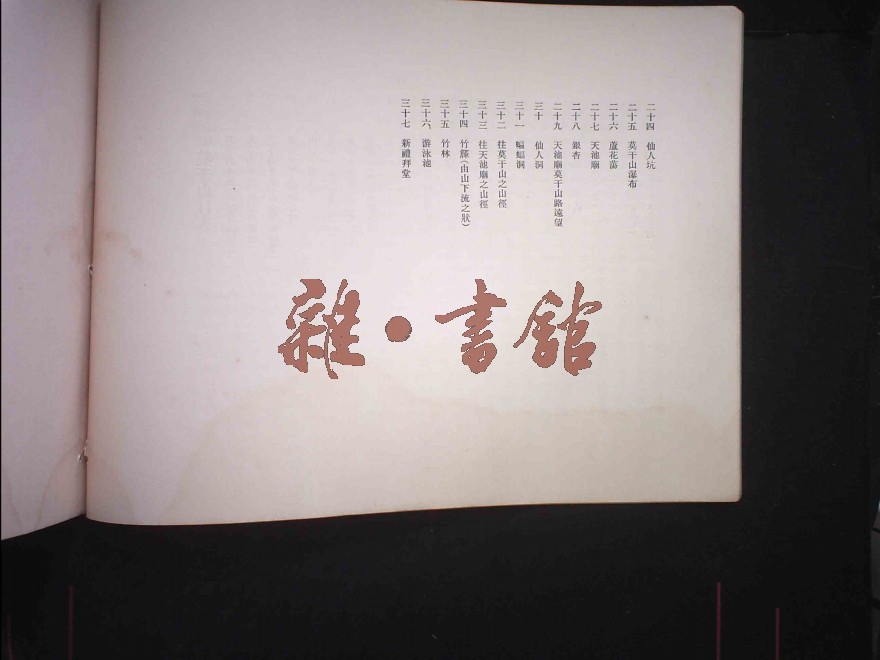 二十四 仙人坑
二十五 莫干山瀑布
二十六 蘆花蕩
二十七 天池廟
二十八 銀杏
二十九 天池廟莫干山路遠望
三十 仙人洞
三十一 蝙蝠洞
三十二 往莫干山之山徑
三十三 往天池廟之山徑
三十四 竹簾(由山下流之狀)
三十五 竹林
三十六 游泳池
三十七 新禮拜堂
雜•書館